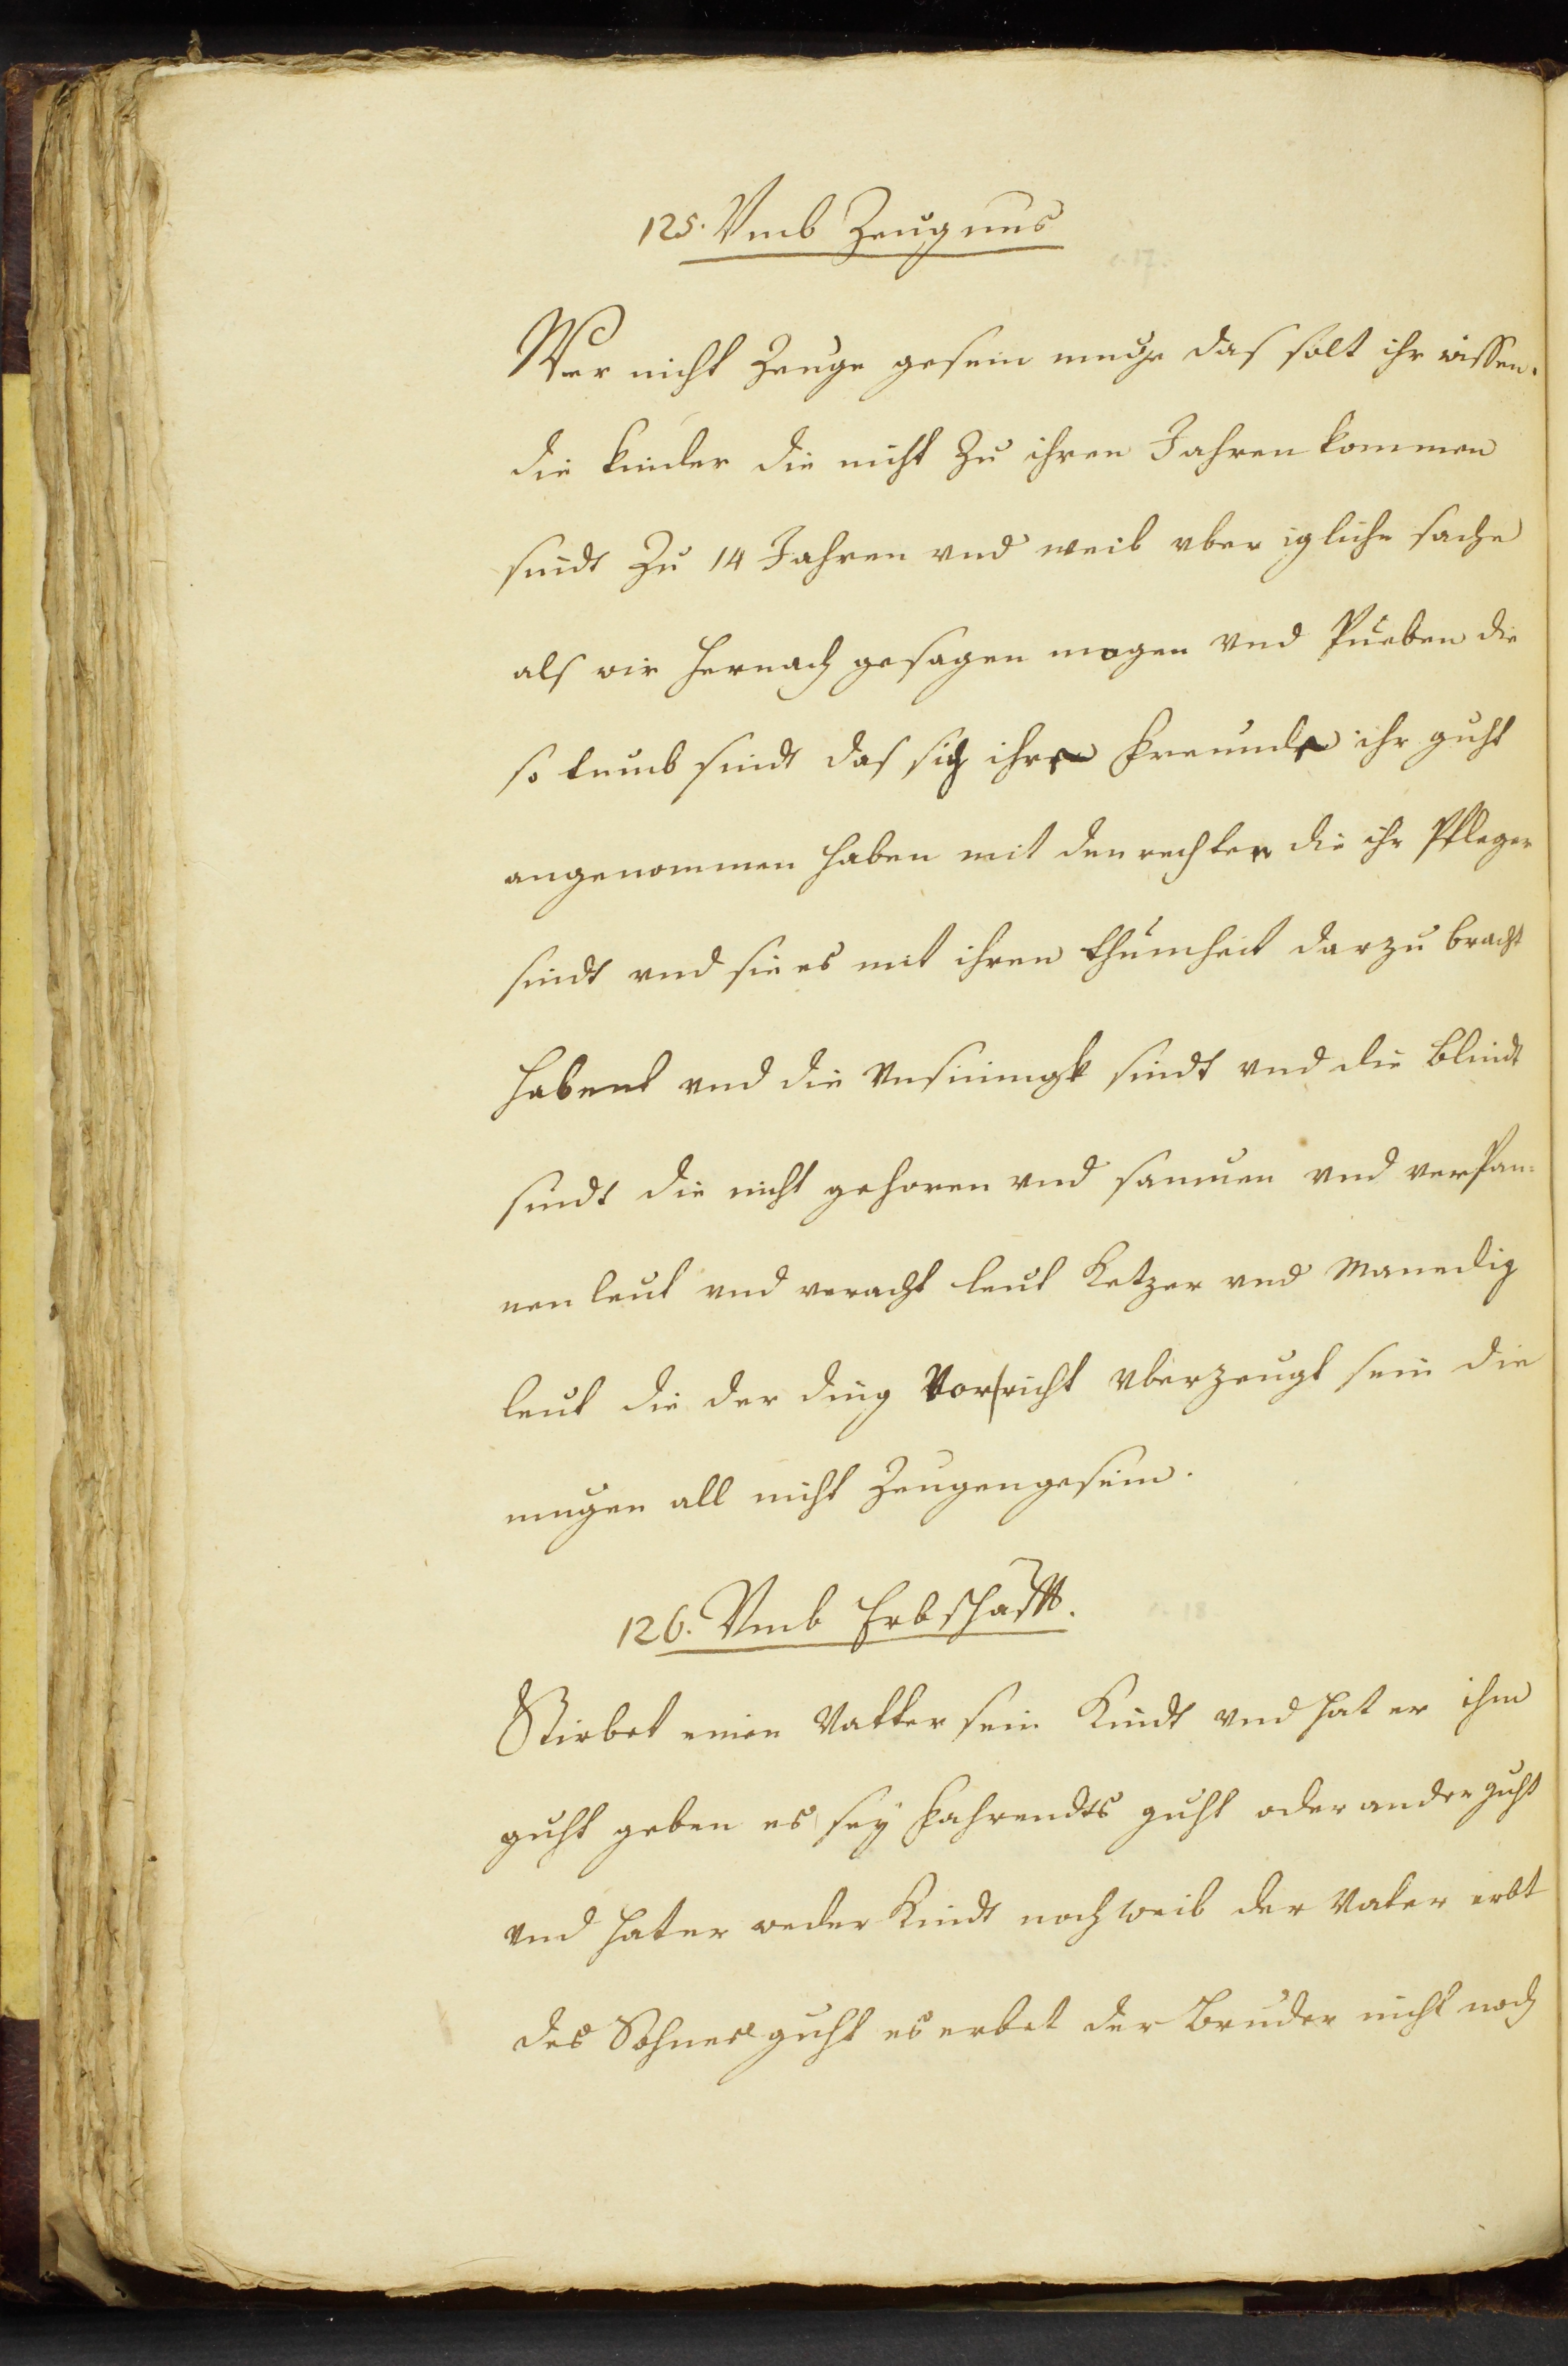 125. Vmb Zeugnus
c. 17.
Wer nicht Zeuge gesein muge das solt ihr wissen.
die kinder die nicht Zu ihren Jahren kommen
sindt Zu 14 Jahren vnd weib vber igliche sache
als wir hernach gesagen mogen vnd Pueben die
so tumb sindt das sich ihre freunde ihr guht
angenommen haben mit den rechten die ihr Pfleger
sindt vnd sie es mit ihren thumheit darzu bracht
habent vnd die Vnsinnigk sindt vnd die blindt
sindt die nicht gehoren vnd vnd verpan=
nen leut vnd veracht leut Ketzer vnd Manedig
leut die der ding Vor richt vberzeugt sein die
mugen all nicht Zeugen gesein.
126. Vmb Erbschafft.
c. 18
Stirbet einen Vatter sein Kindt vnd hat er ihm
guht geben es sey fahrendts guht oder ander guht
vnd hat er weder Kindt noch weib der Vater erbt
des Sohnes guht es erbet der Bruder nicht noch